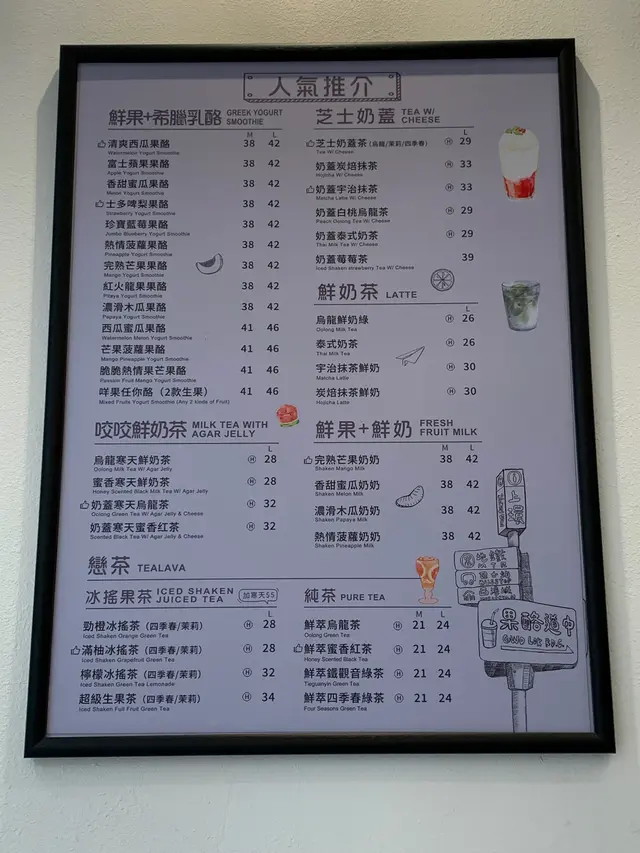 人氣推介
鮮果+希臘乳酪 GREEK YOGURT SMOOTHIE
M L
清爽西瓜果酪 38 42
Watermelon Yogurt Smoothie
富士蘋果果酪 38 42
Apple Yogurt Smoothie
香甜蜜瓜果酪 38 42
Melon Yogurt Smoothie
士多啤梨果酪 38 42
Strawberry Yogurt Smoothie
珍寶藍莓果酪 38 42
Jumbo Blueberry Yogurt Smoothie
熱情菠蘿果酪 38 42
Pineapple Yogurt Smoothie
完熟芒果果酪 38 42
Mango Yogurt Smoothie
紅火龍果果酪 38 42
Pitaya Yogurt Smoothie
濃滑木瓜果酪 38 42
Papaya Yogurt Smoothie
西瓜蜜瓜果酪 41 46
Watermelon Melon Yogurt Smoothie
芒果菠蘿果酪 41 46
Mango Pineapple Yogurt Smoothie
脆脆熱情果芒果酪 41 46
Passion Fruit Mango Yogurt Smoothie
咩果任你酪（2款生果） 41 46
Mixed Fruits Yogurt Smoothie (Any 2 kinds of Fruit)
咬咬鮮奶茶 MILK TEA WITH AGAR JELLY
L
烏龍寒天鮮奶茶 H 28
Oolong Milk Tea W/ Agar Jelly
蜜香寒天鮮奶茶 H 28
Honey Scented Black Milk Tea W/ Agar Jelly
奶蓋寒天烏龍茶 H 32
Oolong Green Tea W/ Agar Jelly & Cheese
奶蓋寒天蜜香紅茶 H 32
Scented Black Tea W/ Agar Jelly & Cheese
芝士奶蓋 TEA W/ CHEESE
L
芝士奶蓋茶(烏龍/茉莉/四季春) H 29
Tea W/ Cheese
奶蓋炭焙抹茶 H 33
Hojicha W/ Cheese
奶蓋宇治抹茶 H 33
Matcha Latte W/ Cheese
奶蓋白桃烏龍茶 H 29
Peach Oolong Tea W/ Cheese
奶蓋泰式奶茶 H 29
Thai Milk Tea W/ Cheese
奶蓋莓莓茶 39
Iced Shaken strawberry Tea W/ Cheese
鮮奶茶 LATTE
L
烏龍鮮奶綠 H 26
Oolong Milk Tea
泰式奶茶 H 26
Thai Milk Tea
宇治抹茶鮮奶 H 30
Matcha Latte
炭焙抹茶鮮奶 H 30
Hojicha Latte
鮮果+鮮奶 FRESH FRUIT MILK
M L
完熟芒果奶奶 38 42
Shaken Mango Milk
香甜蜜瓜奶奶 38 42
Shaken Melon Milk
濃滑木瓜奶奶 38 42
Shaken Papaya Milk
熱情菠蘿奶奶 38 42
Shaken Pineapple Milk
戀茶 TEALAVA
冰搖果茶 ICED SHAKEN JUICED TEA 加寒天$5
L
勁橙冰搖茶（四季春/茉莉） H 28
Iced Shaken Orange Green Tea
滿柚冰搖茶（四季春/茉莉） H 28
Iced Shaken Grapefruit Green Tea
檸檬冰搖茶（四季春/茉莉） H 32
Iced Shaken Green Tea Lemonade
超級生果茶（四季春/茉莉） H 34
Iced Shaken Full Fruit Green Tea
純茶 PURE TEA
M L
鮮萃烏龍茶 H 21 24
Oolong Green Tea
鮮萃蜜香紅茶 H 21 24
Honey Scented Black Tea
鮮萃鐵觀音綠茶 H 21 24
Tieguanyin Green Tea
鮮萃四季春綠茶 H 21 24
Four Seasons Green Tea
上環
果酪道中